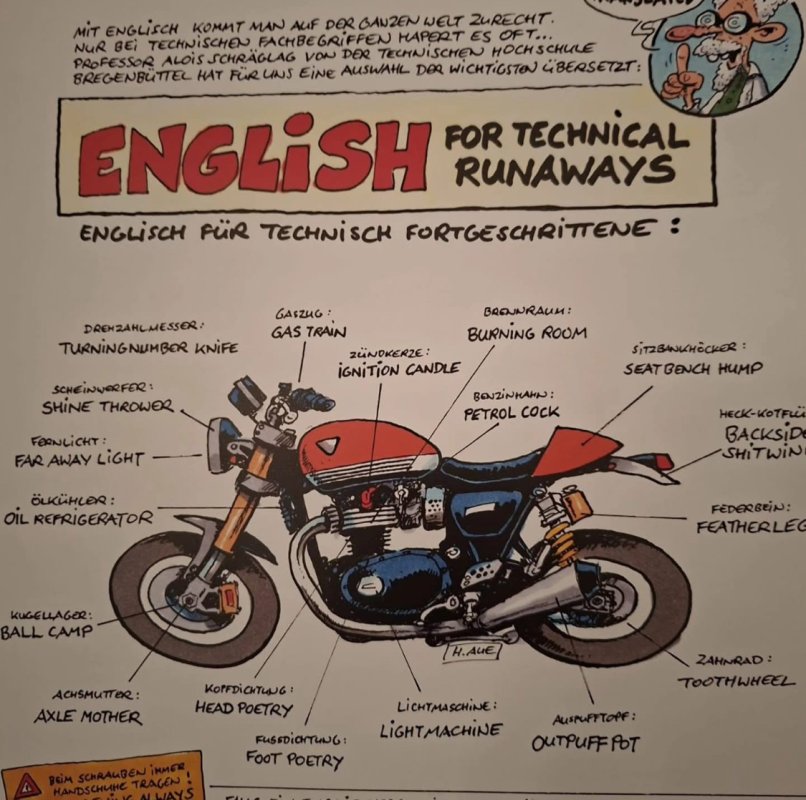 MIT ENGLISCH KOMMT MAN AUF DER GANZEN WELT ZURECHT.
NUR BEI TECHNISCHEN FACHBEGRIFFEN HAPERT ES OFT...
PROFESSOR ALOIS SCHRÄGLAG VON DER TECHNISCHEN HOCHSCHULE
BREGENBÜTTEL HAT FÜR UNS EINE AUSWAHL DER WICHTIGSTEN ÜBERSETZT:
ENGLISH FOR TECHNICAL
RUNAWAYS
ENGLISCH FÜR TECHNISCH FORTGESCHRITTENE:
DREHZAHLMESSER:
TURNINGNUMBER KNIFE
GASZUG:
GAS TRAIN
BRENNRAUM:
BURNING ROOM
ZÜNDKERZE:
IGNITION CANDLE
SITZBANKHÖCKER:
SEATBENCH HUMP
SCHEINWERFER:
SHINE THROWER
BENZINHAHN:
PETROL COCK
HECK-KOTFLÜ
BACKSIDE
SHITWIN
FERNLICHT:
FAR AWAY LIGHT
ÖLKÜHLER:
OIL REFRIGERATOR
FEDERBEIN:
FEATHERLEG
KUGELLAGER:
BALL CAMP
H. AUE
ZAHNRAD:
TOOTHWHEEL
ACHSMUTTER:
AXLE MOTHER
KOPFDICHTUNG:
HEAD POETRY
LICHTMASCHINE:
LIGHTMACHINE
AUSPUFFTOPF:
OUTPUFF POT
FUSSDICHTUNG:
FOOT POETRY
BEIM SCHRAUBEN IMMER
HANDSCHUHE TRAGEN!
ALWAYS